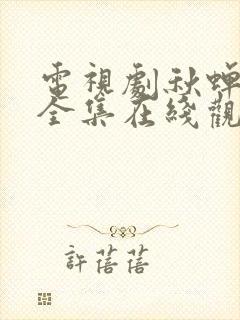 電視劇秋蟬
全集在綫觀
許蓓蓓